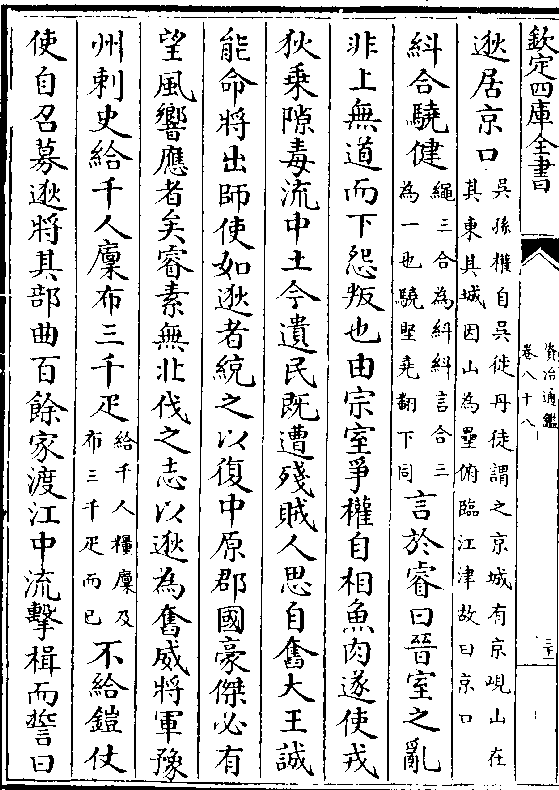 欽定四庫全書
資治通鑑
卷八十八
逖居京口
吳孫權自吳徙丹徒謂之京城有京峴山在
其東其城因山為壘俯臨江津故曰京口
糾合驍健
繩三合為糾糾言合三
為一也驍堅堯翻下同
言於睿曰晉室之亂
非上無道而下怨叛也由宗室爭權自相魚肉遂使戎
狄乘隙毒流中土今遺民既遭殘賊人思自奮大王誠
能命將出師使如逖者統之以復中原郡國豪傑必有
望風響應者矣睿素無北伐之志以逖為奮威將軍豫
州刺史給千人廩布三千疋
給千人糧廩及
布三千疋而已
不給鎧仗
使自召募逖將其部曲百餘家渡江中流擊楫而誓曰